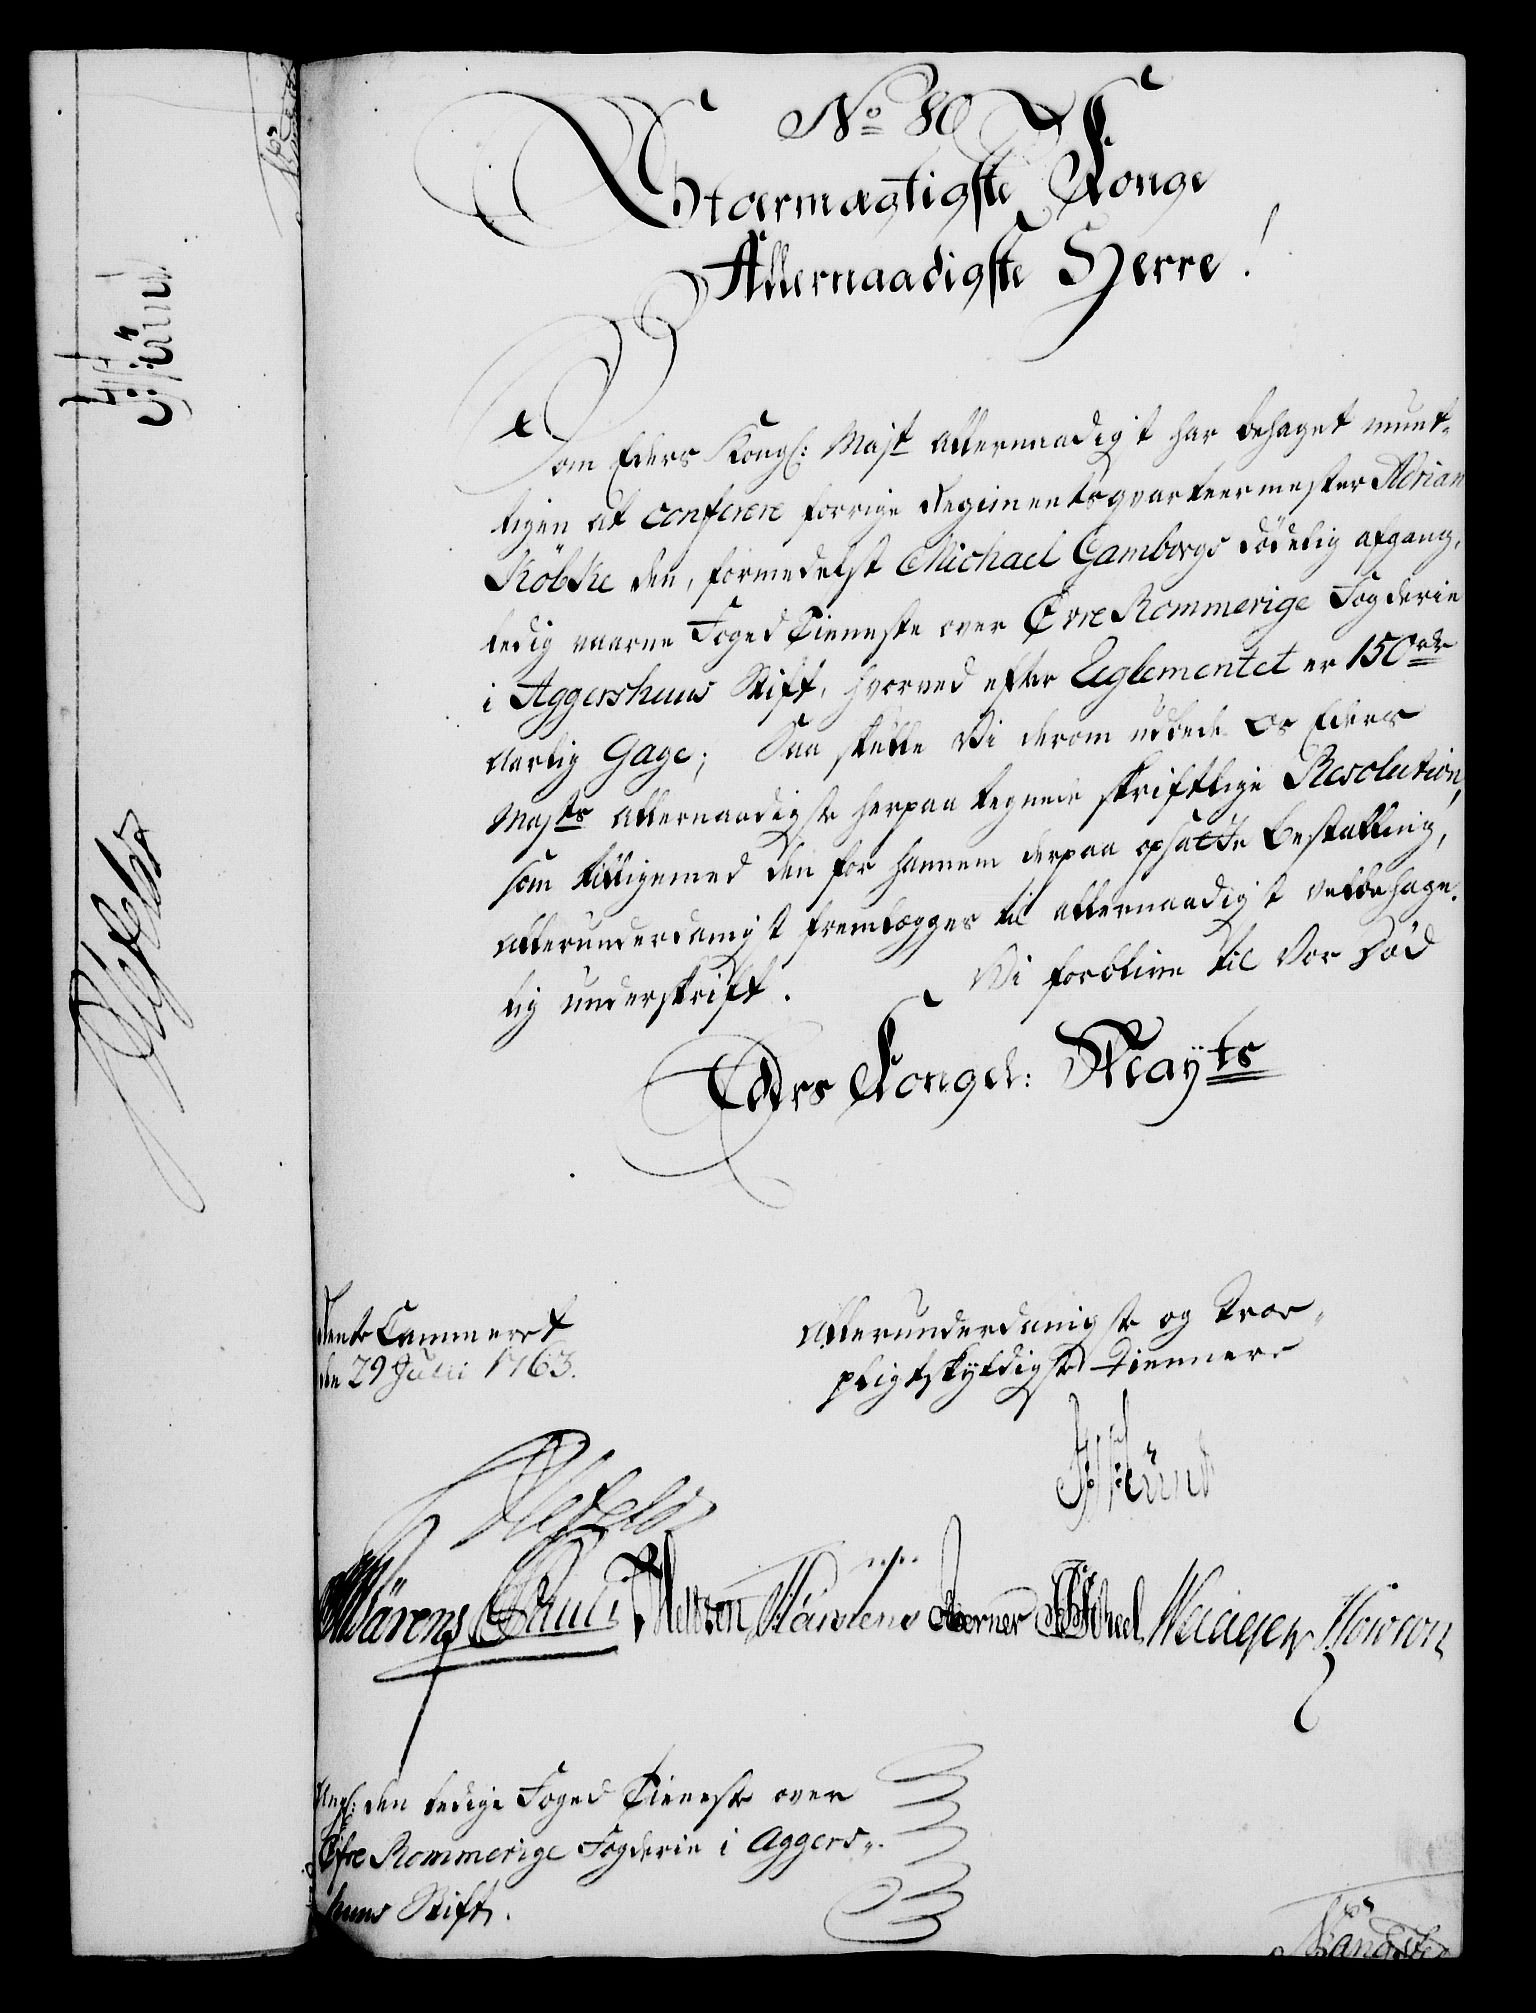 No 80
Stoermægtigste Konge
Allernaadigste Herre!
Som Eders Kongl: Majt allernaadigst har behaget munt-
ligen at conferere forrige Regimentsqvarteermester Adrian
Köbke den, formedelst Michael Gamborgs dödelig afgang,
ledig vaarne Foged Tieneste over Övre Rommerige Fogderie
i Aggershuus Stift, hvorved efter Reglementet er 150 rdr
Aarlig Gage; Saa skulle Vi derom udbede os Eders
Majts allernaadigste herpaa tegnede skriftlige Resolution,
som tilligemed den for hannem derpaa opsatte Bestalling,
allerunderdanigst fremlægges til allernaadigst velbehage-
lig underskrift. Vi forblive til Vor Död
Eders Kongel: Mayts
Rente Cammeret
den 29 Julii 1763.
Allerunderdanigste og Troe-
pligtskyldigste Tiennere
Wärens Pauli
Berner
Angl: den ledige Foged Tieneste over
Öfre Rommerige Fogderie i Aggers-
huus Stift.